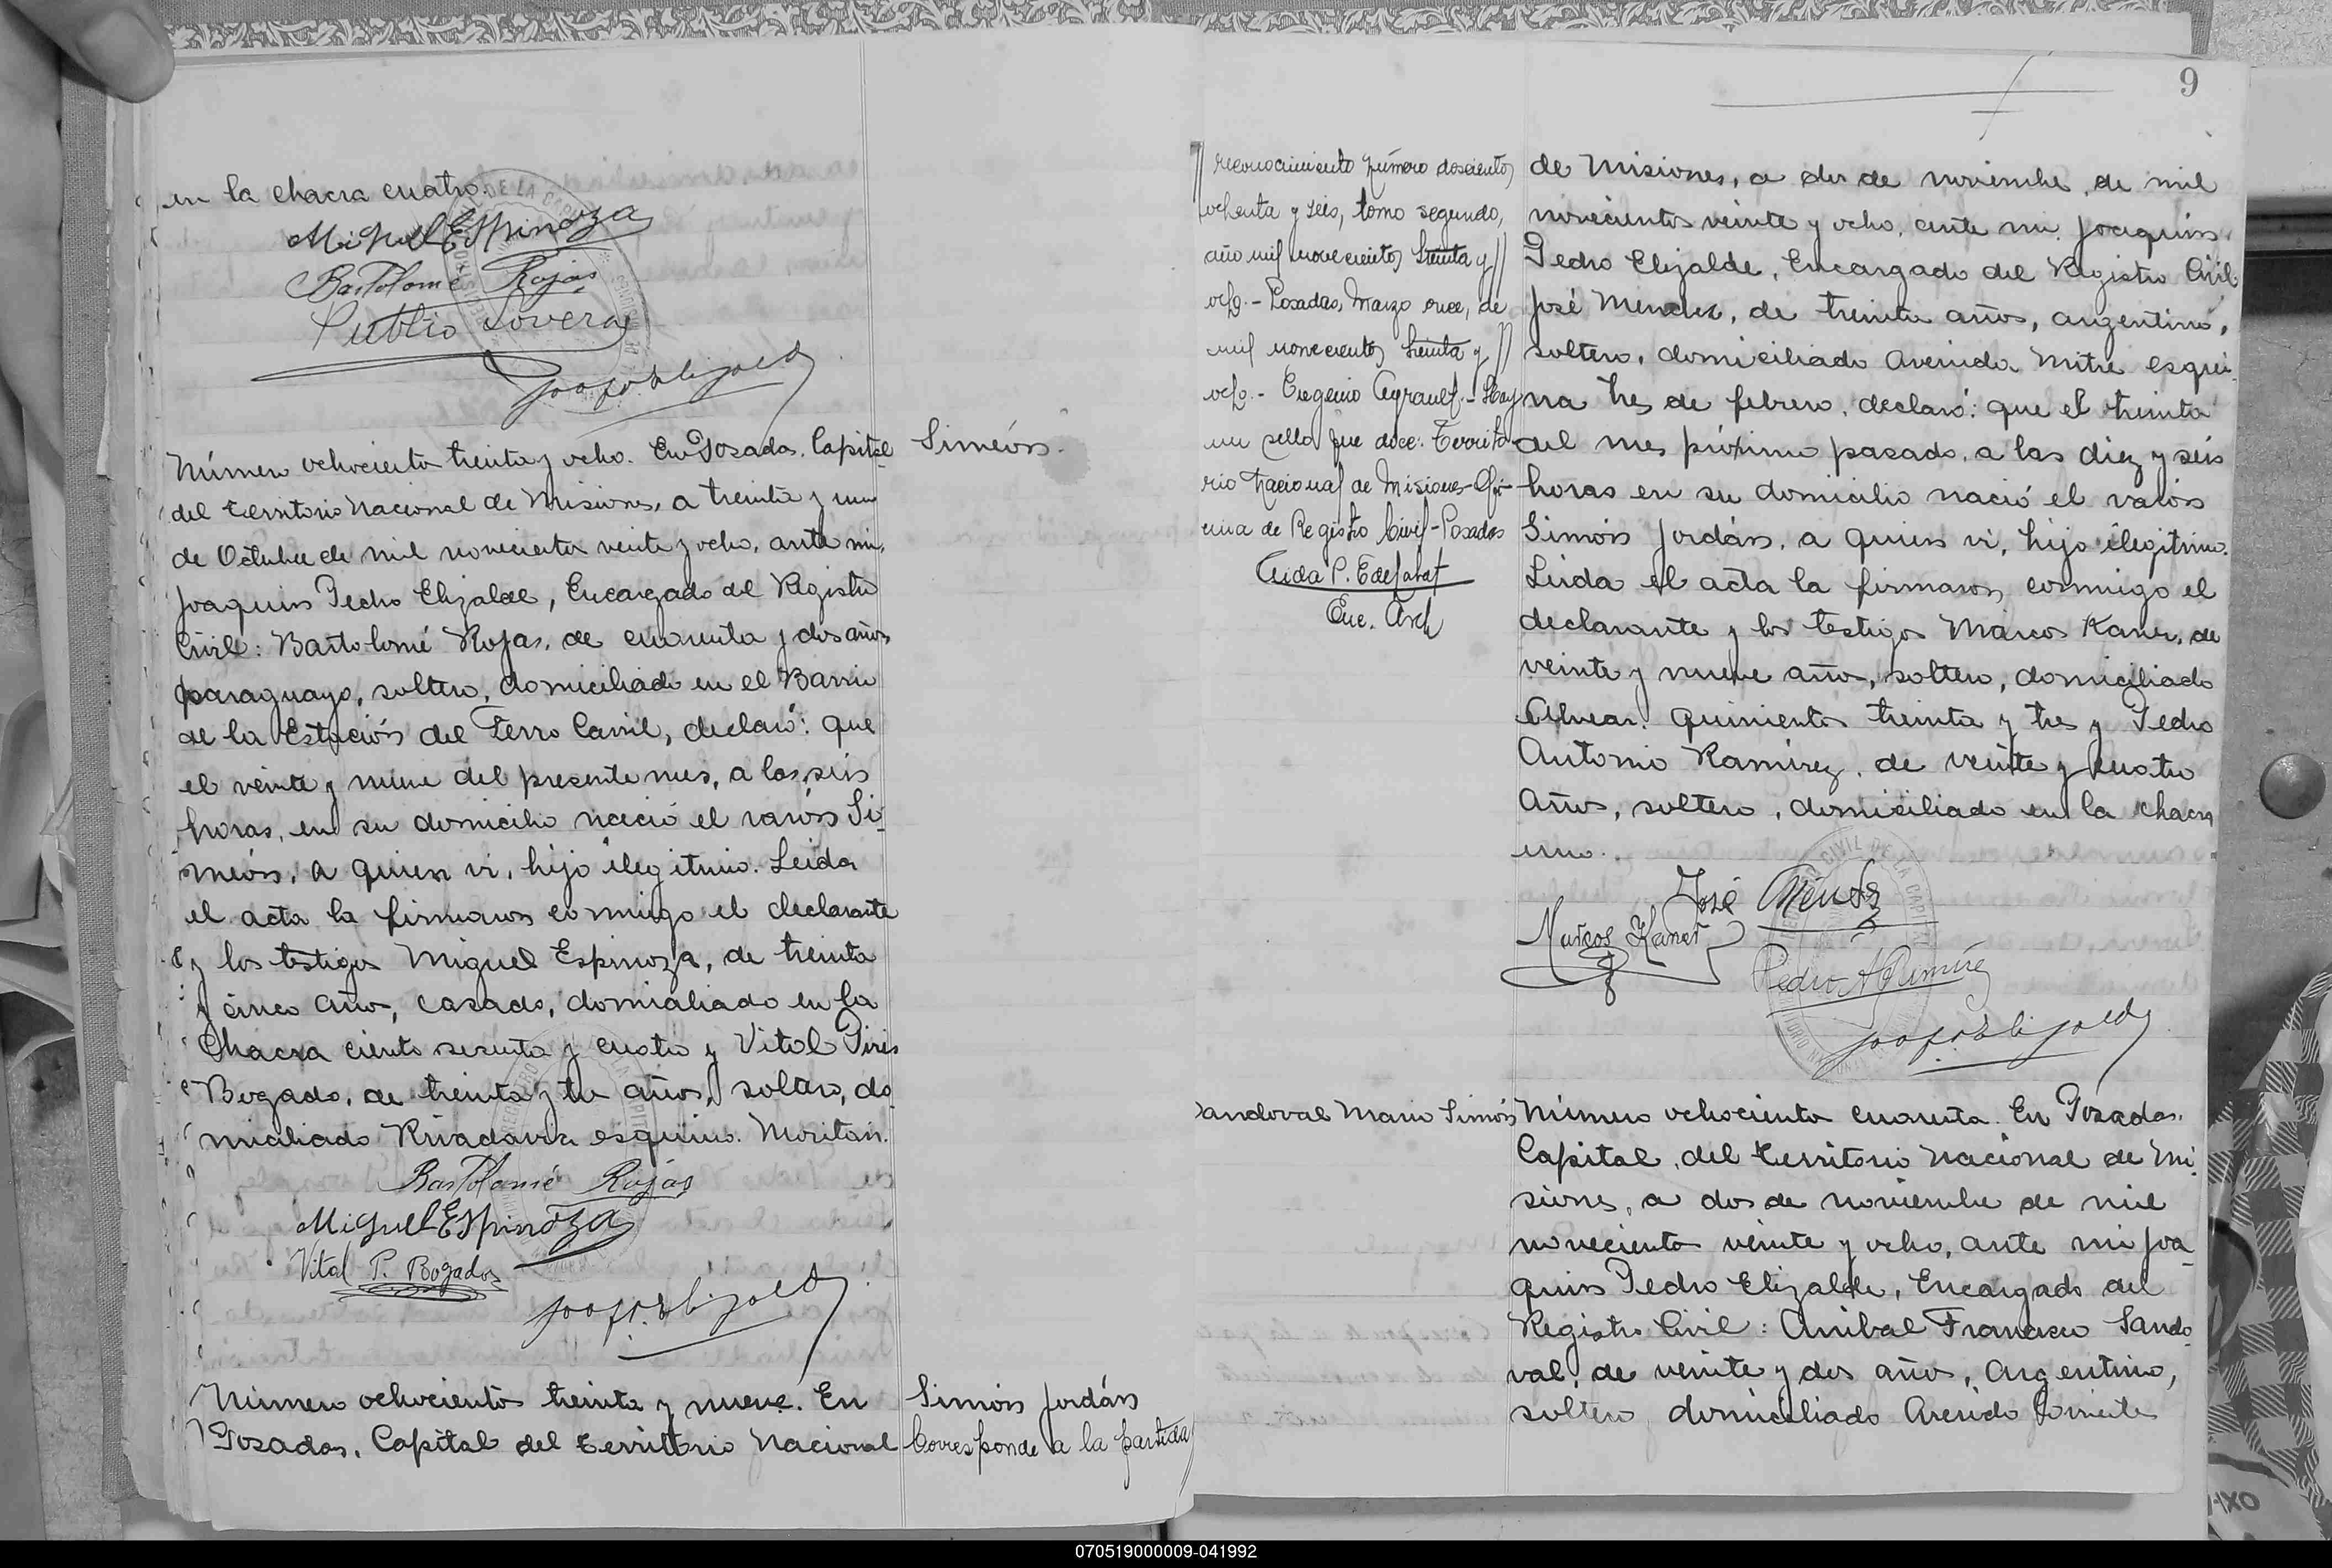 en la chacra cuatro.
Miguel Espinoza
Bartolomé Rojas
Publio
Número ochociento treinta y ocho. En Posadas, Capital
del Territorio Nacional de Misiones, a treinta y uno
de Octubre de mil novecientos veinte y ocho, ante mi,
Joaquin Pedro Elizalde, Encargado del Registro
Civil: Bartolomé Rojas, de cuarenta y dos años
paraguayo, soltero, domiciliado en el Barrio
de la Estación del Ferro Carril, declaró: que
el veinte y nueve del presente mes, a las seis
horas, en su domicilio nació el varón Si-
meón, a quien vi, hijo ilegitimo. Leida
el acta la firmaron conmigo el declarante
y los testigos Miguel Espinoza, de treinta
y cinco año, casado, domialiado en la
Chacra ciento sesenta y cuatro y Vital Piris
Bogado, de treinta y tre años, soltero, do-
micialiado Rivadavia esquina.
Bartolomé Rojas
Miguel Espinoza
Vital P. Bogado
Simeón.
Número ochociento treinta y nueve. En
Posadas, Capital del Territorio Nacional
Simón Jordán
Corresponde a la partida
9
reconocimiento número doscientos
ochenta y seis, tomo segundo,
año mil novecientos treinta y
ocho.- Posadas, Marzo once, de
mil novecientos treinta y
ocho.- Eugenio - Hay
un sello que dice: Territo-
rio Nacional de Misiones-Ofi-
cina de Registro Civil-Posadas
Enc. Arch
de Misiones, a dos de noviembre, de mil
novecientos veinte y ocho, ante mi Joaquin
Pedro Elizalde, Encargado del Registro Civil
José Mendez, de treinta años, argentino,
soltero, domiciliado Avenida Mitre esqui-
na tres de febrero, declaró: que el treinta
del mes próximo pasado, a las diez y seis
horas en su domicilio nació el varón
Simón Jordán, a quien vi, hijo ilegitimo.
Leida el acta la firmaron conmigo el
declarante y los testigos Marcos Kaner, de
veinte y nueve año, soltero, domiciliado
Alvear quinientos treinta y tres y Pedro
Antonio Ramirez, de veinte y cuatro
años, soltero, domiciliado en la chacra
uno.
José Méndez
Marcos Kaner
Pedro A Ramírez
Sandoval Mario Simón
Número ochociento cuarenta. En Posadas,
Capital, del Territorio Nacional de Mi-
siones, a dos de noviembre de mil
noveciento veinte y ocho, ante mi Joa-
quin Pedro Elizalde, Encargado del
Registro Civil: Anibal Francisco Sando-
val, de veinte y dos años, Argentino,
soltero, domiciliado Avenida Corrientes
070519000009-041992